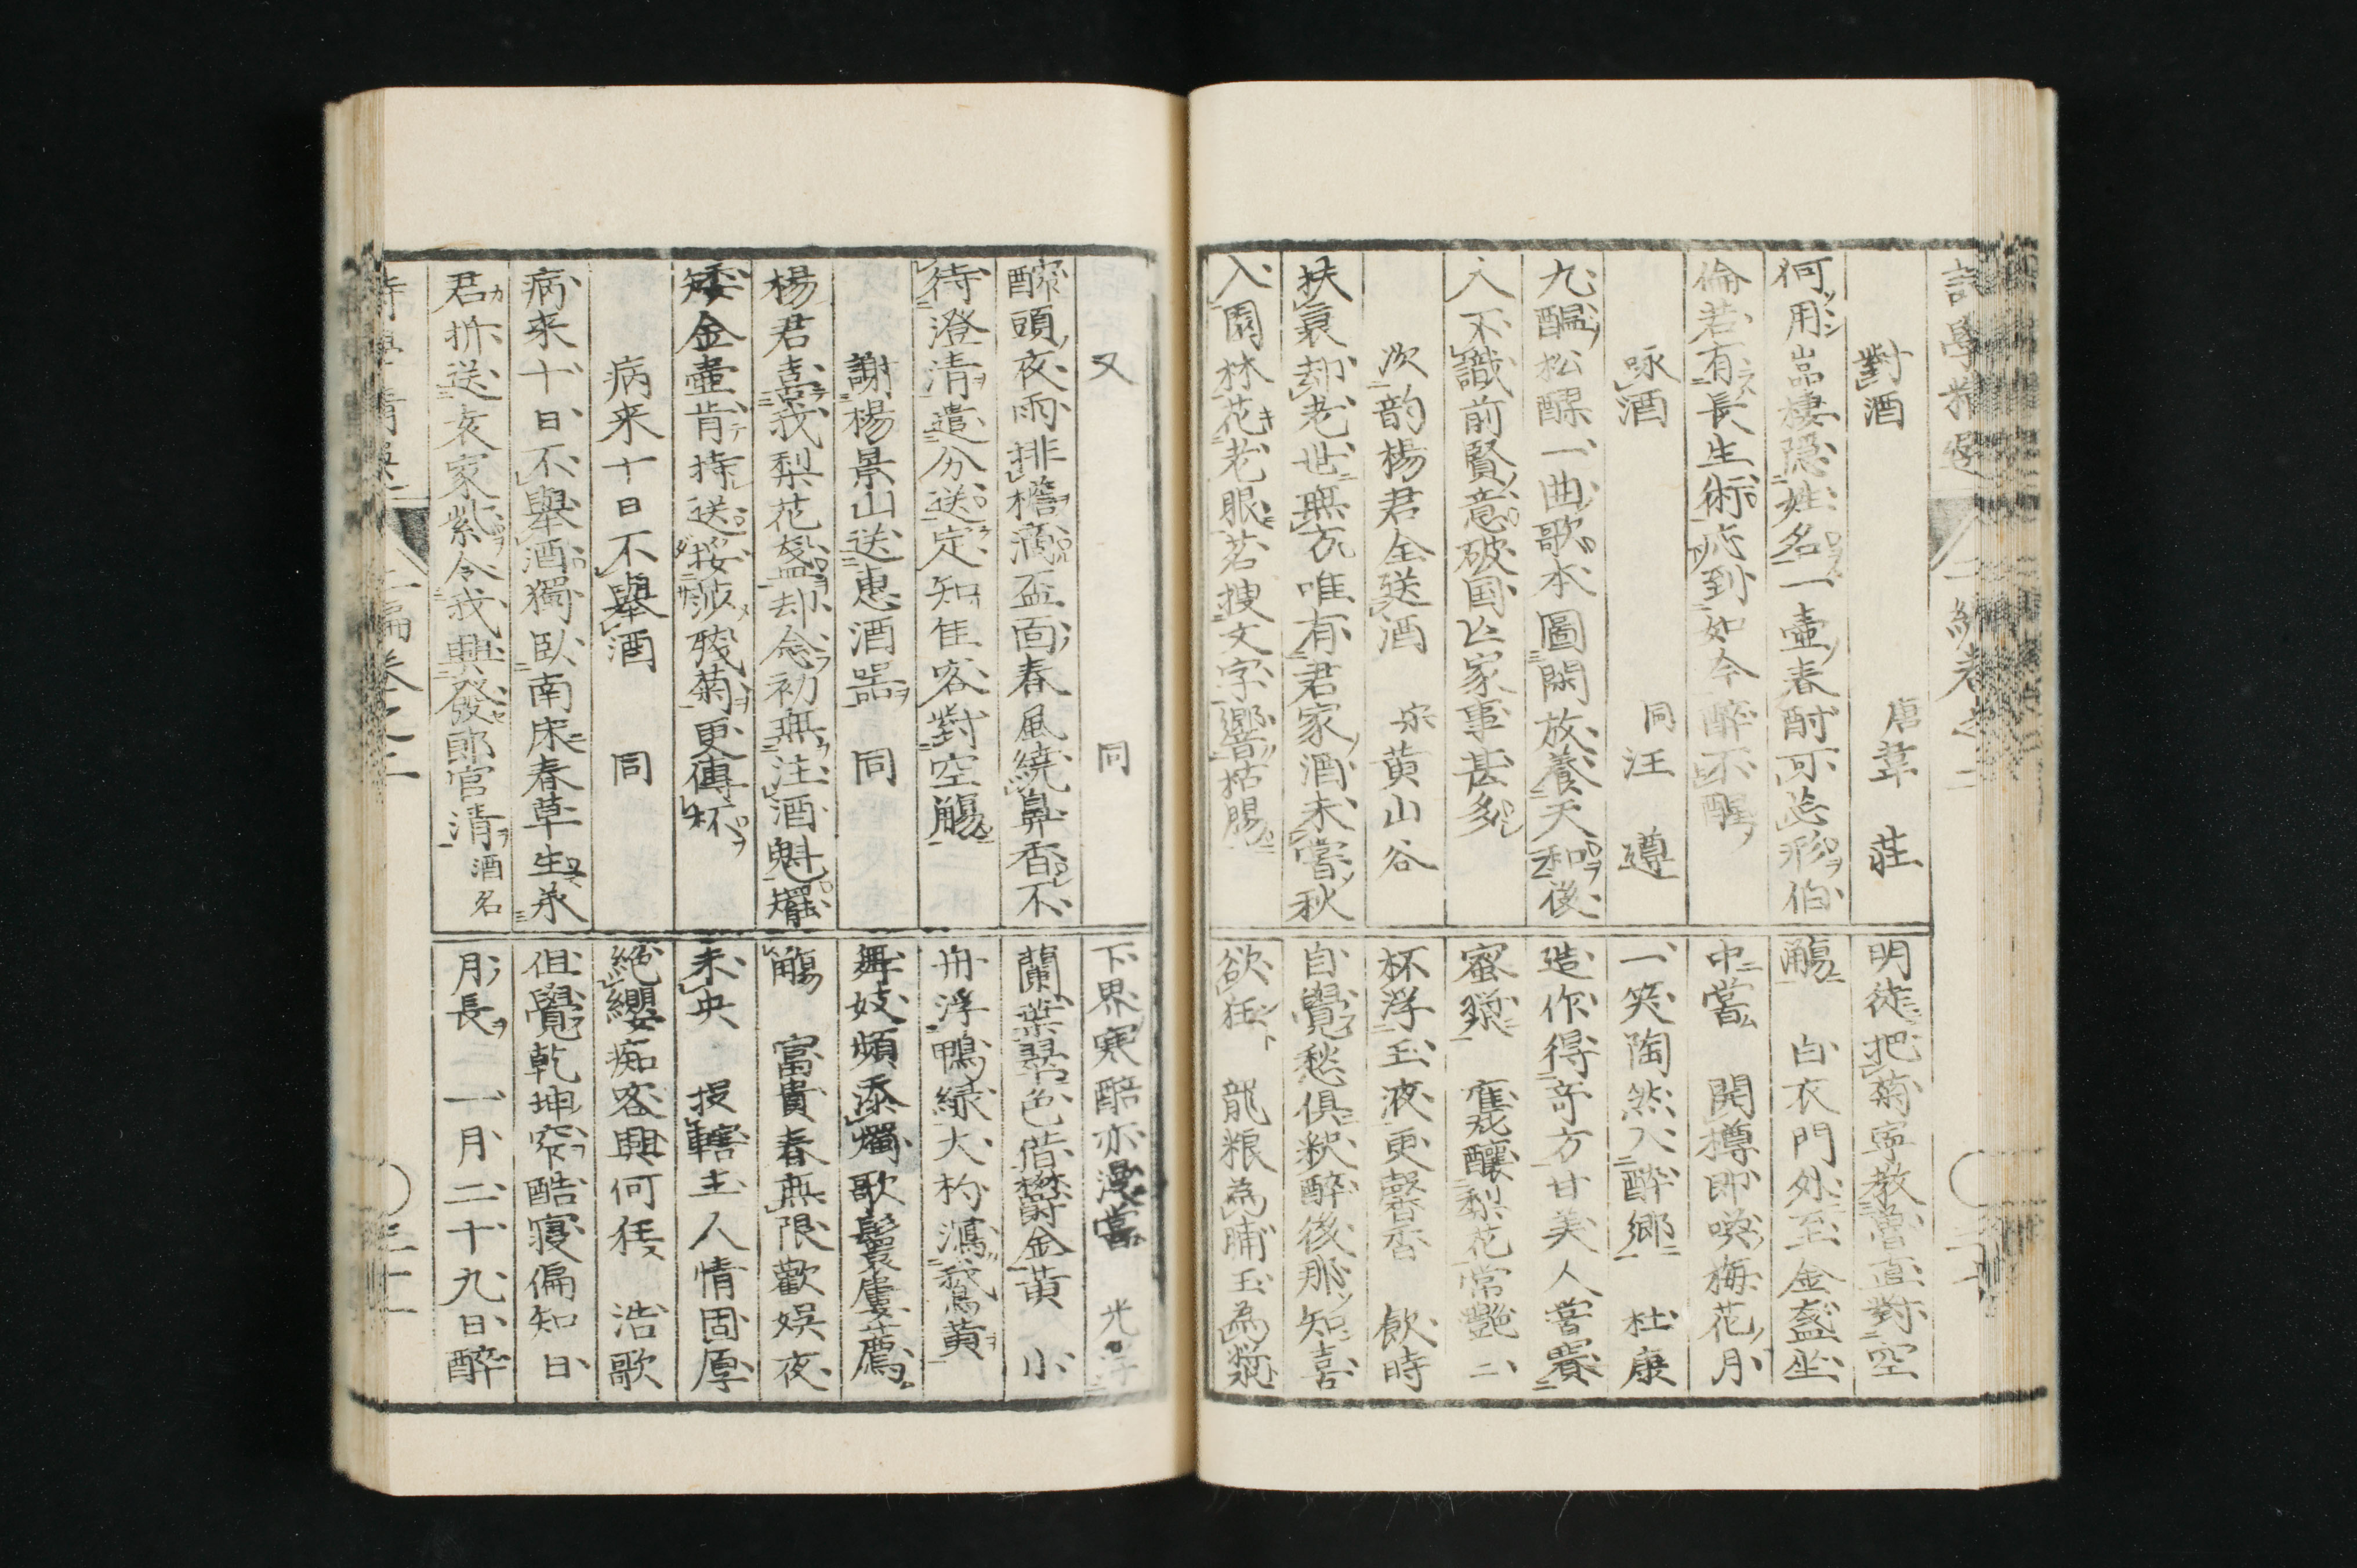 詩學
對酒 唐韋莊
何用岩棲隱姓名一壷春酎可忘形伯
倫若有長生術応到如今醉不醒
咏酒 同汪遵
九醞松醪一曲歌本圖閑放養天和後
人不識前賢意破国亡家事甚多
次韵楊君全送酒 宋黄山谷
扶衰却老世無方唯有君家酒未嘗秋
入園林花老眼茗搜文字響枯腸
明徒把菊寧教魯直對空
觴 白衣門外至金盞坐
中嘗 開樽即喚梅花月
一笑陶然入醉郷 杜康
造作得奇方甘美人嘗賽
蜜漿 舊瓮釀梨花常艶 二
杯浮玉液更馨香 飲時
自覺愁俱釈醉後那知喜
欲狂 龍粮為脯玉為漿
又 同
醡頭夜雨排檐滴盃面春風繞鼻香不
待澄清遣分送定知佳客對空觴
謝楊景山送惠酒器 同
楊君喜我梨花盞却念初無注酒魁
矮金壷肯持送挼莎残菊更傳杯
病来十日不舉酒 同
病来十日不舉酒獨臥南床春草生承
君折送袁家紫令我興發郎官清酒名
二編巻之二
下界寒醅亦漫當 光浮
蘭葉翠色偕欝金黄 小
舟浮鴨緑大杓瀉鵞黄
舞妓頻添燭歌鬟屢薦
觴 富貴春無限歡娯夜
未央 投轄主人情固厚
絶纓痴客興何狂 浩歌
但覺乾坤窄酷寝偏知日
月長 一月二十九日醉